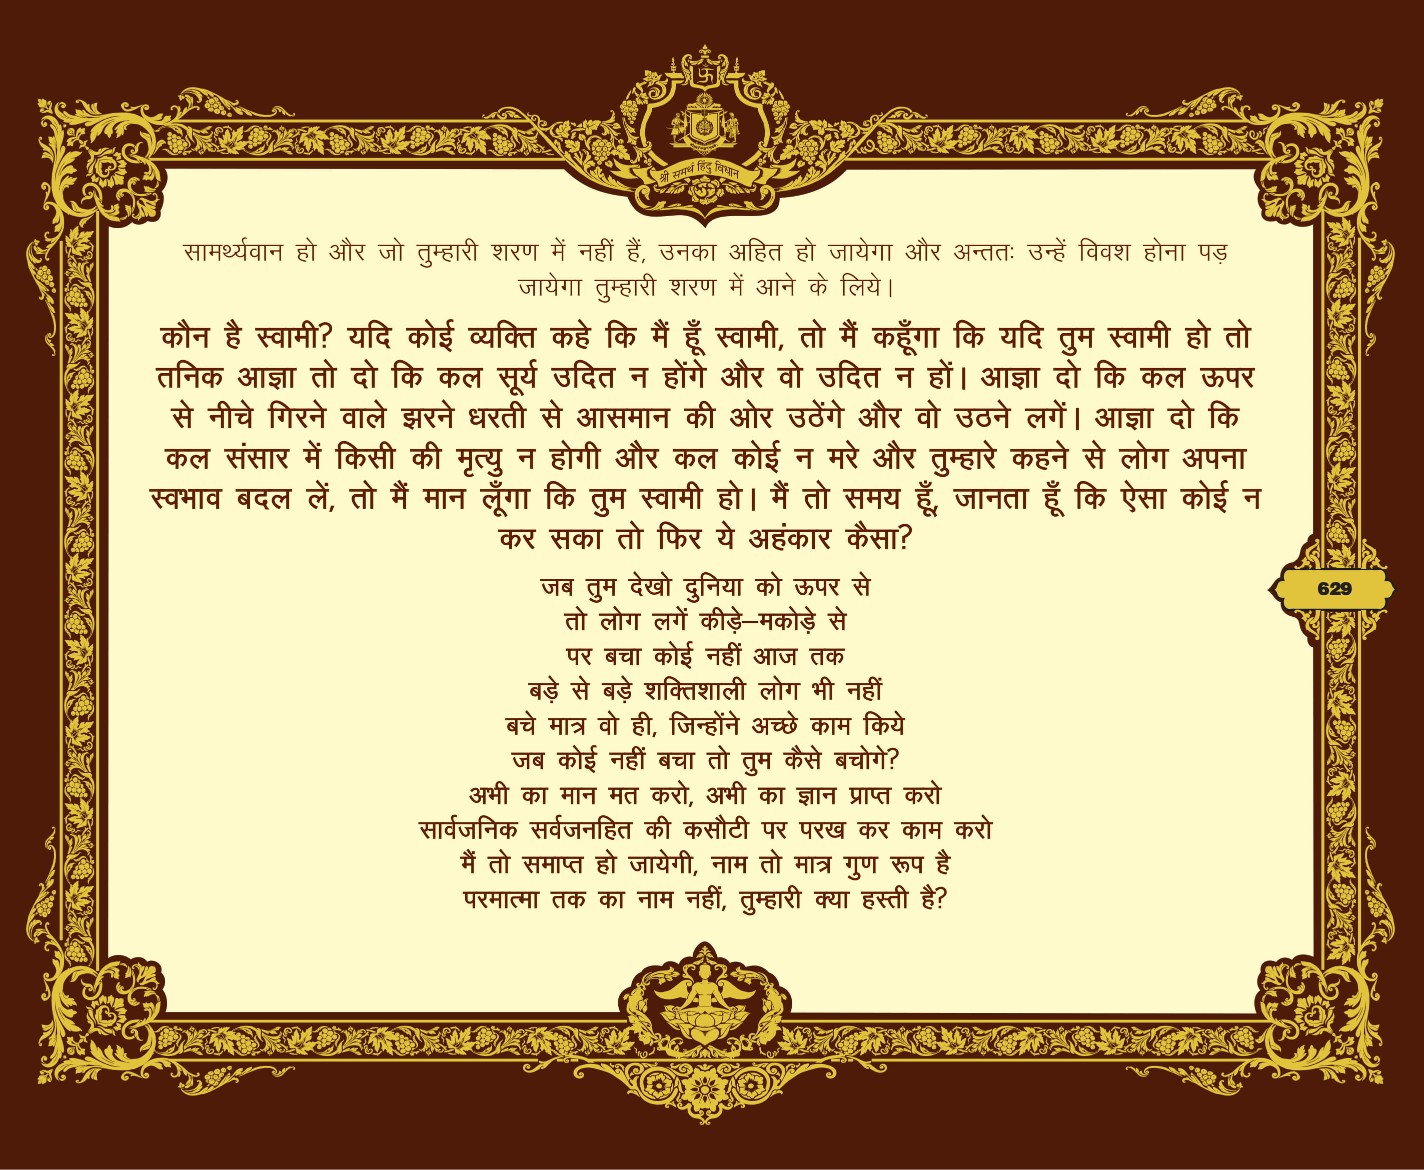 श्री समर्थ हिंदु विधान
सामर्थ्यवान हो और जो तुम्हारी शरण में नहीं हैं, उनका अहित हो जायेगा और अन्ततः उन्हें विवश होना पड़
जायेगा तुम्हारी शरण में आने के लिये।
कौन है स्वामी? यदि कोई व्यक्ति कहे कि मैं हूँ स्वामी, तो मैं कहूँगा कि यदि तुम स्वामी हो तो
तनिक आज्ञा तो दो कि कल सूर्य उदित न होंगे और वो उदित न हों। आज्ञा दो कि कल ऊपर
से नीचे गिरने वाले झरने धरती से आसमान की ओर उठेंगे और वो उठने लगें। आज्ञा दो कि
कल संसार में किसी की मृत्यु न होगी और कल कोई न मरे और तुम्हारे कहने से लोग अपना
स्वभाव बदल लें, तो मैं मान लूँगा कि तुम स्वामी हो। मैं तो समय हूँ, जानता हूँ कि ऐसा कोई न
कर सका तो फिर ये अहंकार कैसा?
जब तुम देखो दुनिया को ऊपर से
तो लोग लगें कीड़े–मकोड़े से
पर बचा कोई नहीं आज तक
बड़े से बड़े शक्तिशाली लोग भी नहीं
बचे मात्र वो ही, जिन्होंने अच्छे काम किये
629
जब कोई नहीं बचा तो तुम कैसे बचोगे?
अभी का मान मत करो, अभी का ज्ञान प्राप्त करो
सार्वजनिक सर्वजनहित की कसौटी पर परख कर काम करो
मैं तो समाप्त हो जायेगी, नाम तो मात्र गुण रूप है
परमात्मा तक का नाम नहीं, तुम्हारी क्या हस्ती है?